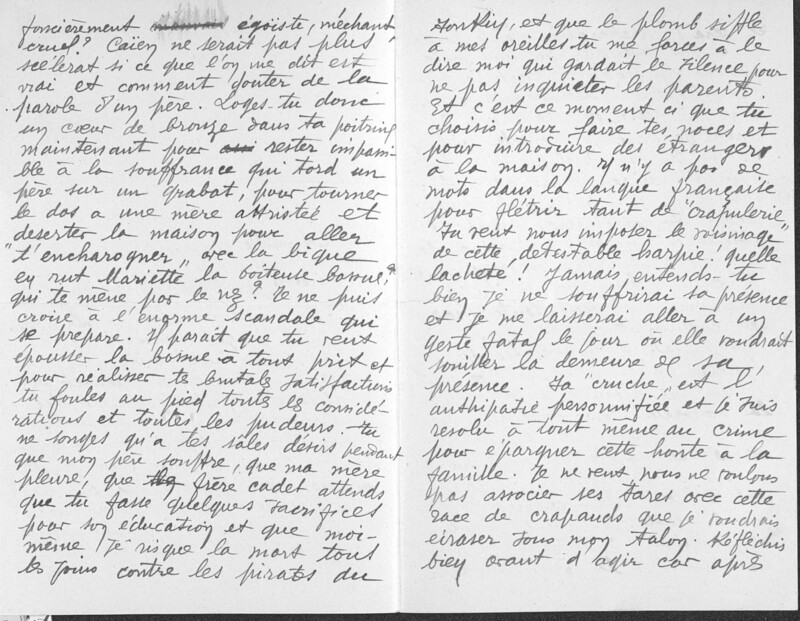 foncièrement égoïste, méchant
cruel? Caïen ne serait pas plus
scélérat si ce que l'on me dit est
vrai et comment douter de la
parole d'un père. Loges-tu donc
un cœur de bronze dans ta poitrine
maintenant pour rester impassi-
ble à la souffrance qui tord un
père sur un grabat, pour tourner
le dos a une mère attristée et
deserter la maison pour aller
"t'encharogner" avec la bique
en rut Mariette la boiteuse bossue,
qui te mène par le nez? Je ne puis
croire à l'énorme scandale qui
se prepare. Il parait que tu veux
épouser la bossue à tout prix et
pour réaliser tes brutales satisfactions
tu foules au pied toutes les considé-
rations et toutes les pudeurs. Tu
ne songes qu'a tes sâles désirs pendant
que mon père souffre, que ma mère
pleure, que frère cadet attends
que tu fasse quelques sacrifices
pour son éducation et que moi-
même je risque la mort tous
les jours contre les pirates du
Tonkin, et que le plomb siffle
à mes oreilles tu me forces à le
dire moi qui gardait le silence pour
ne pas inquieter les parents.
Et c'est ce moment ci que tu
choisis pour faire tes noces et
pour introduire des étrangers
à la maison. Il n'y a pas de
mots dans la langue française
pour flétrir tant de "crapulerie"
Tu veux nous imposer le voisinage
de cette détestable harpie. quelle
lacheté! Jamais entends-tu
bien je ne souffrirai sa présence
et je me laisserai aller à un
geste fatal le jour où elle voudrait
souiller la demeure de sa
présence. Ta "cruche" est l'
anthipatie personnifiée et je suis
resolu à tout même au crime
pour épargner cette honte à la
famille. Je ne veux nous ne voulons
pas associer ses tares avec cette
race de crapauds que je voudrais
écraser sous mon talon. Réfléchis
bien avant d'agir car après